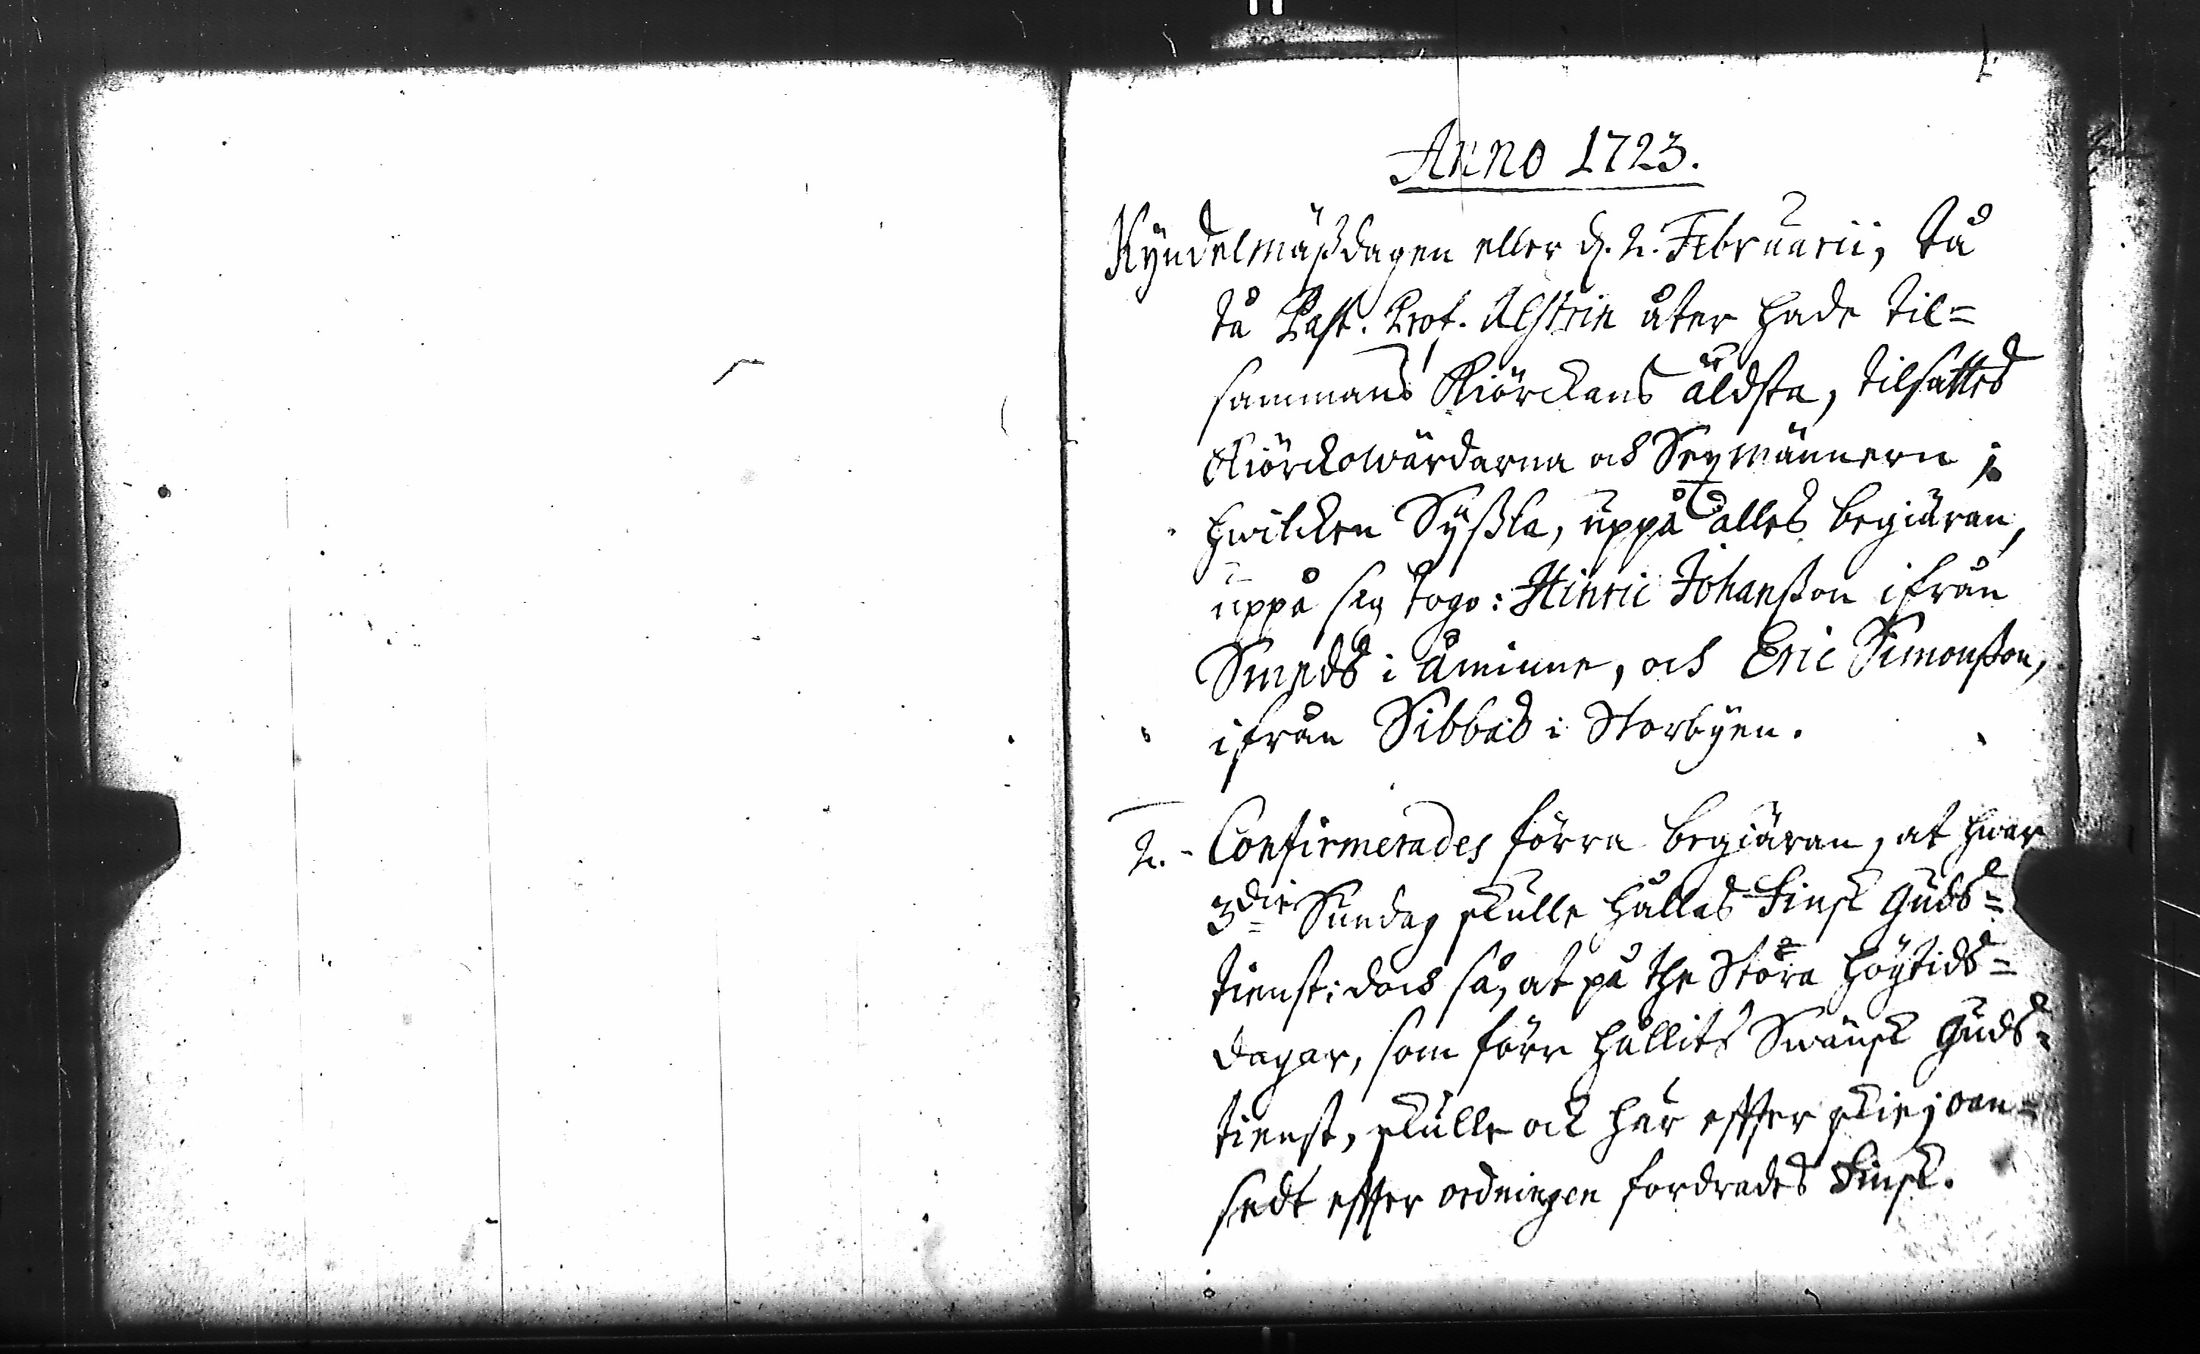 Anno 1723.
Kyndelmäßdagen eller d. 2. Februarii, tå
tå Past. Prof. Alstrin åter hade til=
sammans Kiörckans äldsta, tilsattes
Kiörckowärdarna och Sexmännern;
hwilcken Syßla, uppå alles begiäran,
uppå sig togo: Hinric Johanßon ifrån
Smeds i Åminne, och Eric Simonßon,
ifrån Sibbas i Storbyen.
2. Confirmerades förra begiäran, at hwar
3die Sundag skulle hållas Finsk Guds=
tienst; dock så, at på the Stora höytids=
dagar, som förr hållits Swänsk Guds=
tienst, skulle ock här effter skie; oan=
sedt effter ordningen fordrades Finsk.